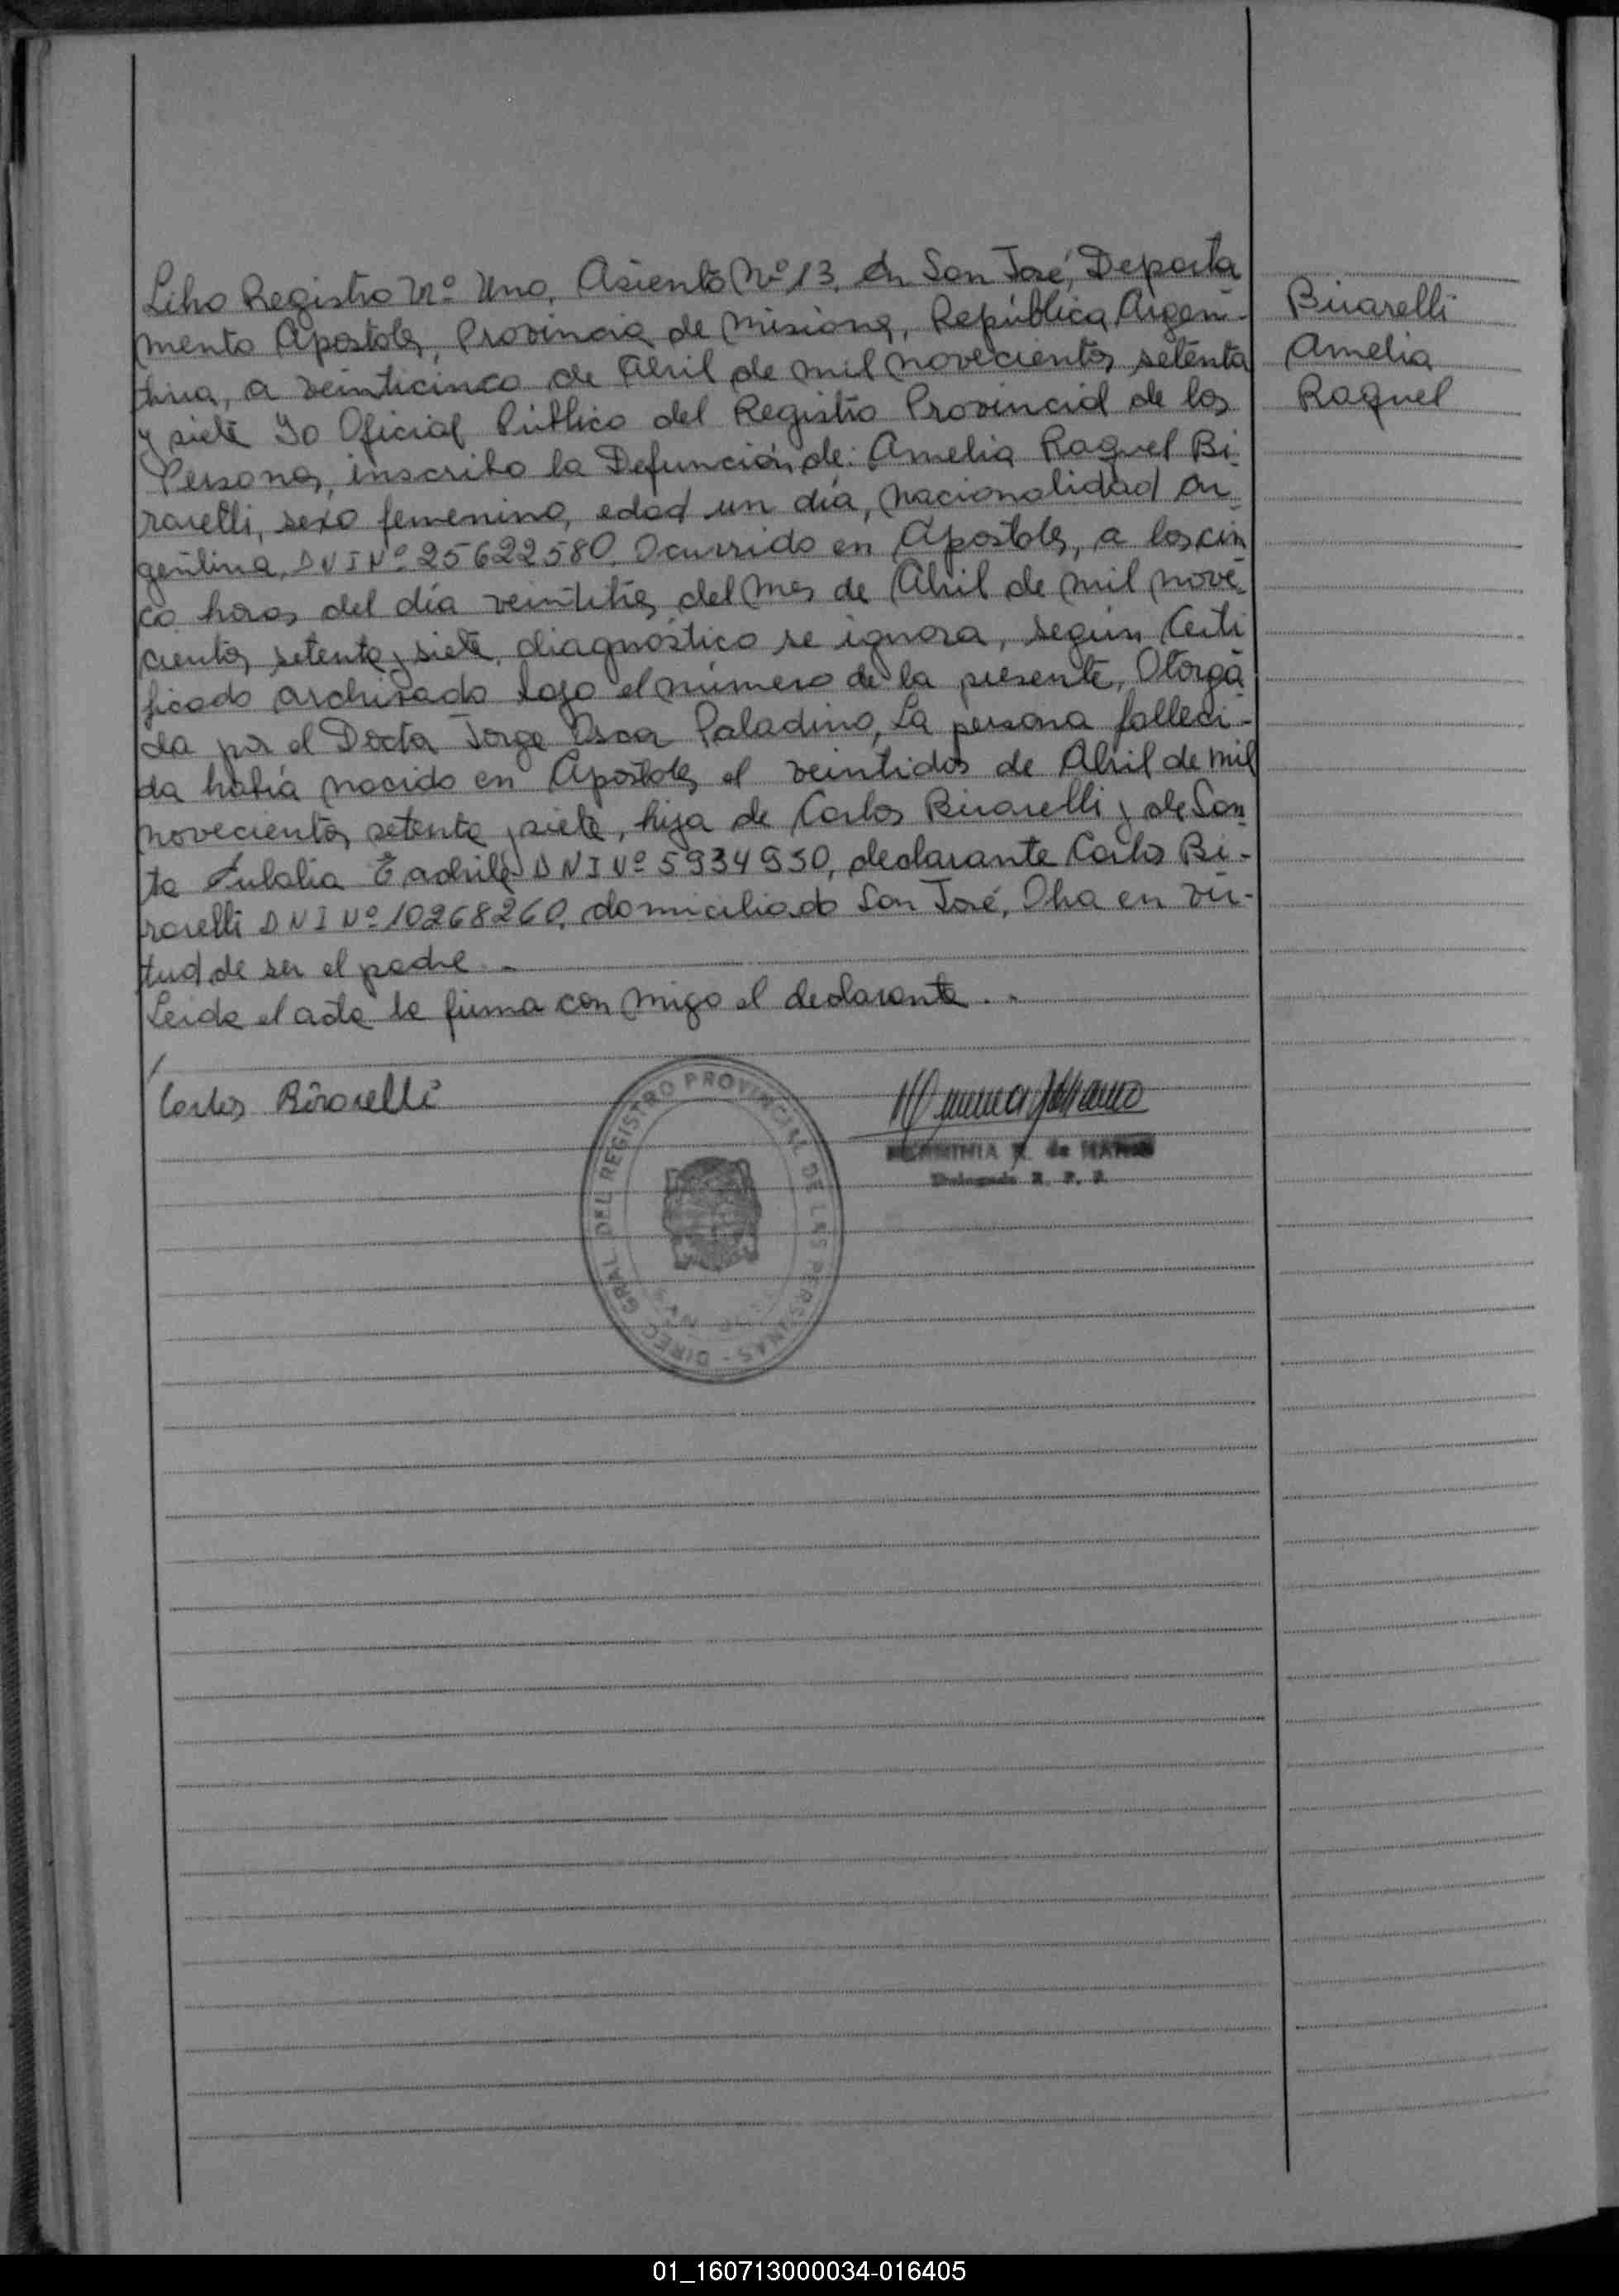 Libro Registro Nº Uno, Asiento Nº 13, En San José, Departa
mento Apostoles, Provincia de Misiones, República Argen-
tina, a veinticinco de Abril de mil novecientos setenta
y siete Yo Oficial Público del Registro Provincial de las
Personas, inscribo la Defunción de: Amelia Raquel Bi
rarelli, sexo femenino, edad un día, nacionalidad ar
gentina, DNI Nº 25622580. Ocurrido en Apostoles, a las cin
co horas del día veintitrés del mes de Abril de mil nove
cientos setenta y siete, diagnóstico se ignora, según Certi
ficado archivado bajo el número de la presente, Otorga
da por el Doctor Jorge Oscar Paladino, La persona falleci-
da había nacido en Apostoles el veintidos de Abril de mil
novecientos setenta y siete, hija de Carlos Birarelli y de San
ta Eulalia DNI Nº 5934930, declarante Carlos Bi-
rarelli DNI Nº 10268260, domiciliado San José, Obra en vir-
tud de ser el padre. -
Leida el acta la firma con migo el declarante. -
Birarelli
Amelia
Raquel
Carlos Birarelli
DIREC. GRAL DEL REGISTRO PROVINCIAL DE LAS PERSONAS -
HERMINIA de
Delegada R. P. P.
01_160713000034-016405